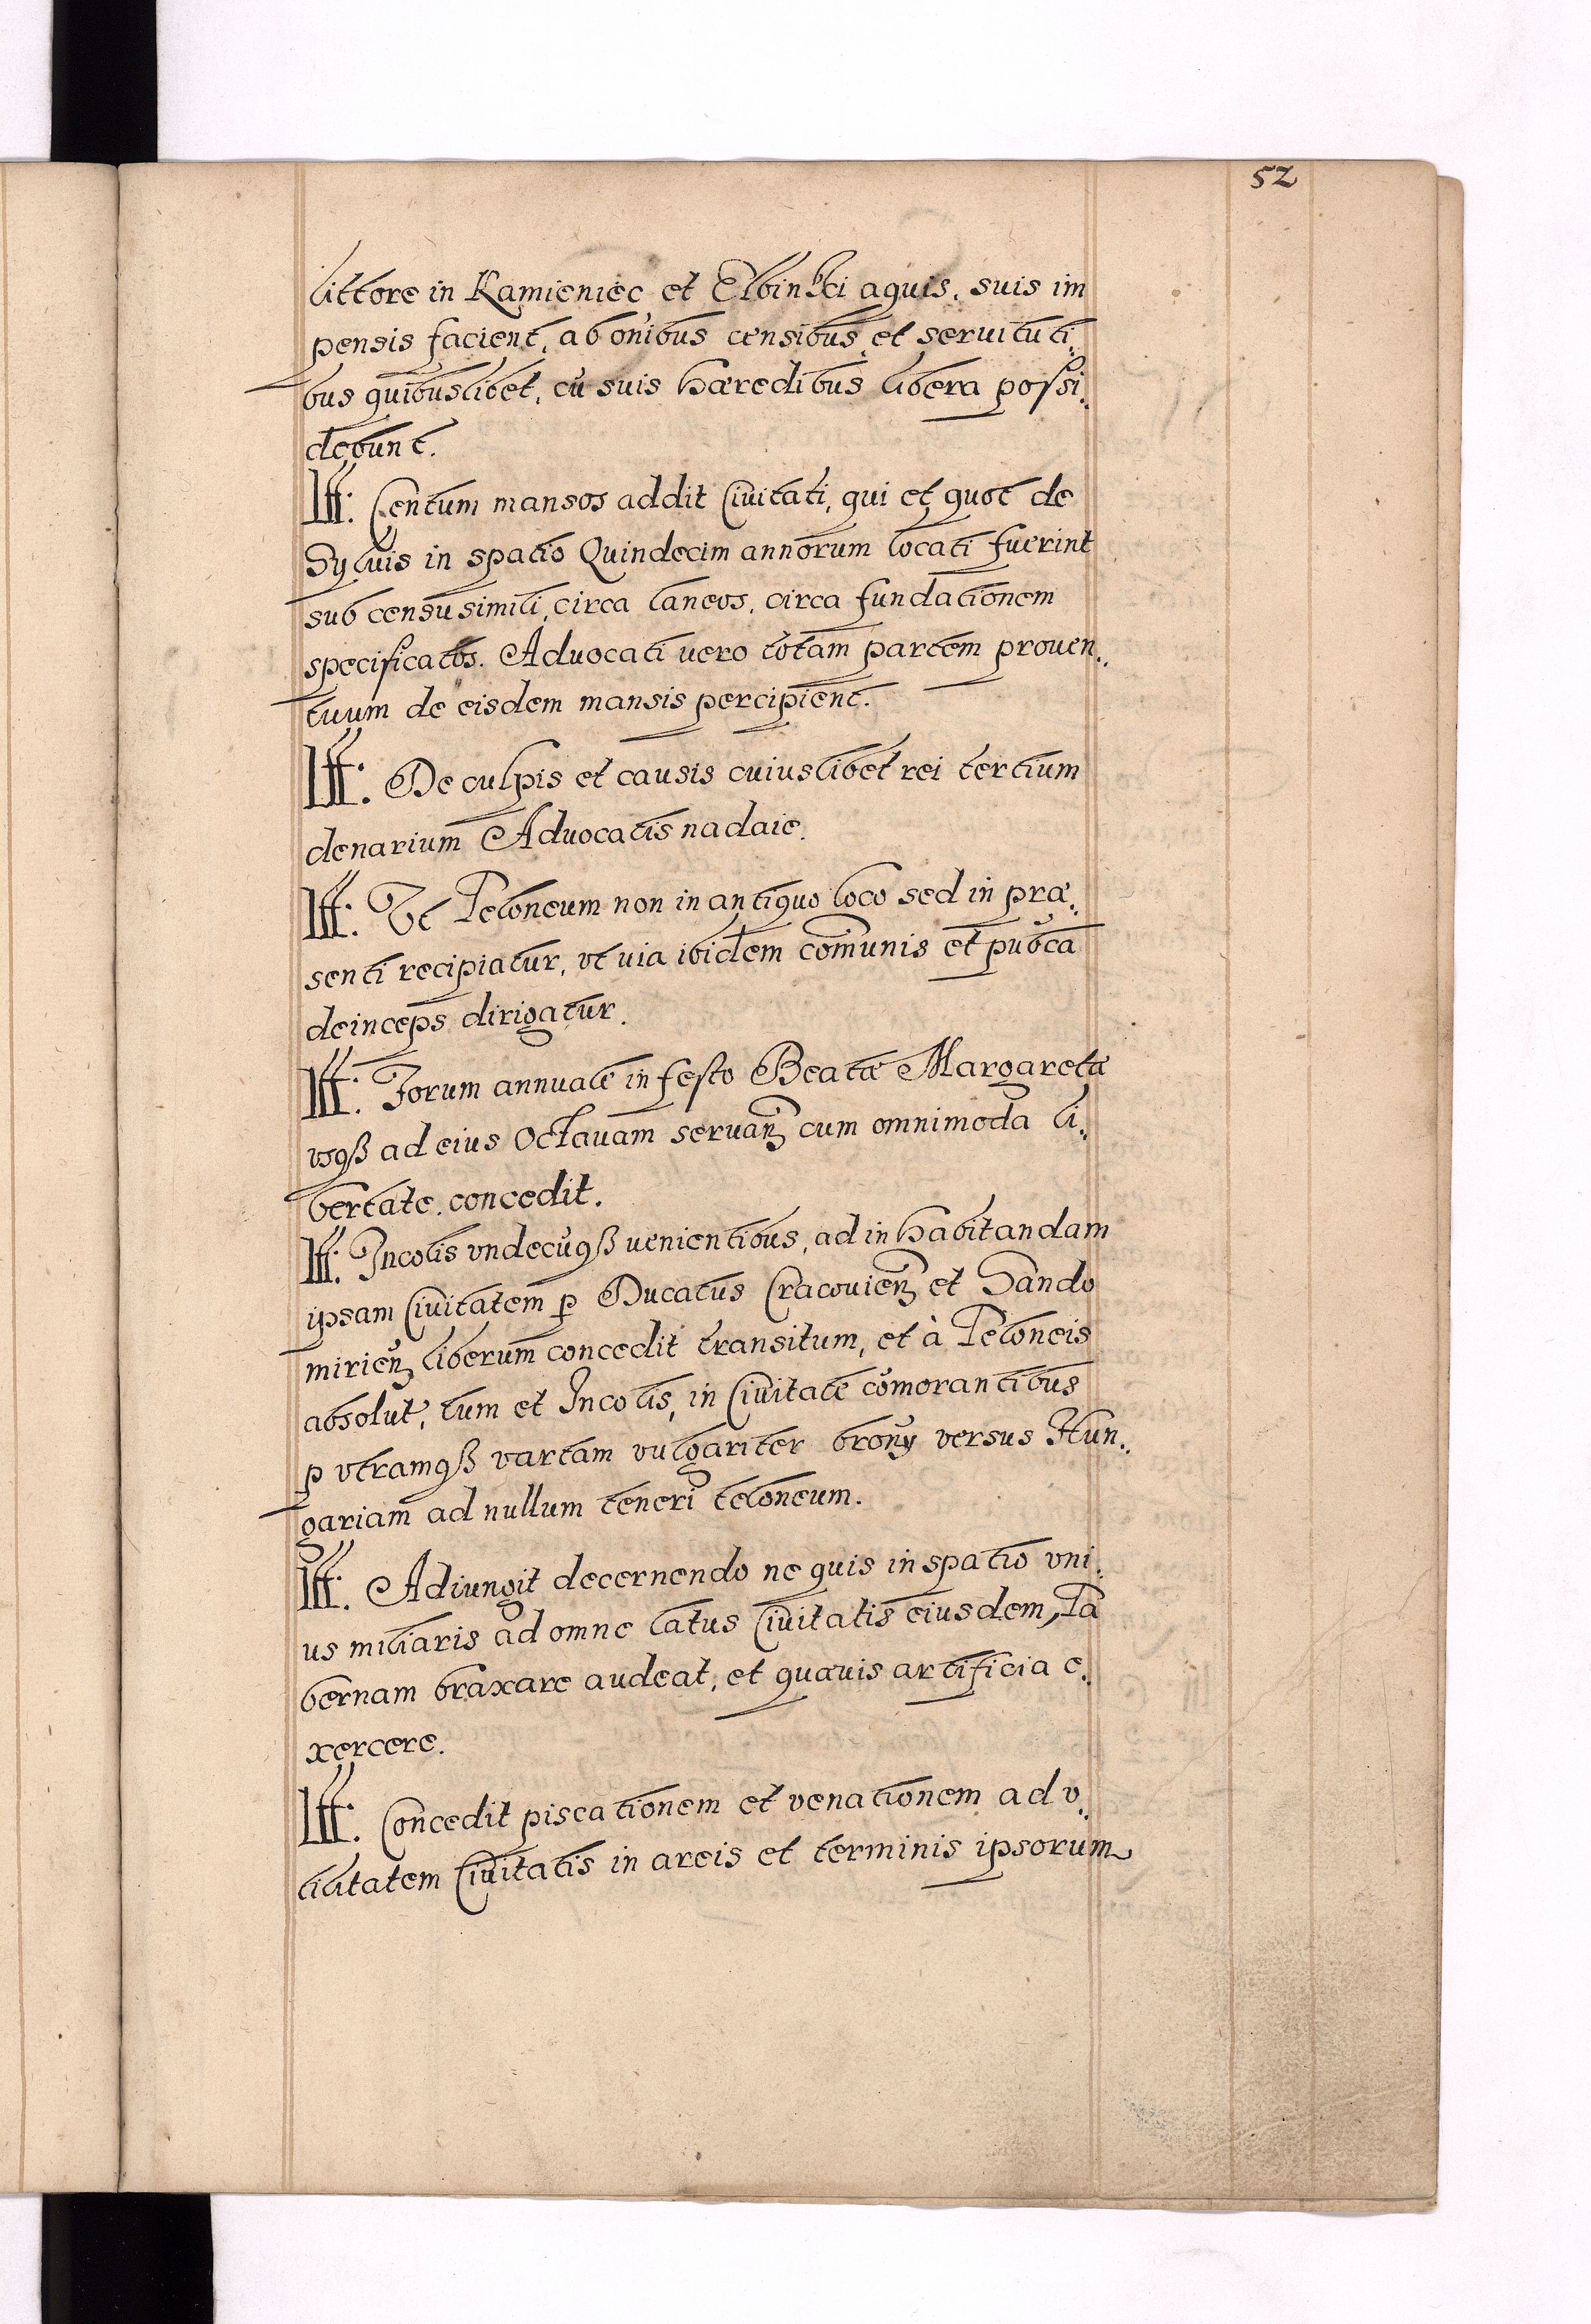 52
littore in Kamieniec et Elbinski aquis, suis im
pensis facient, ab oĩbus censibus et seruituti„
bus quibuslibet, cũ suis hæredibus libera possi„
debunt.
Itt: Centum mansos addit Ciuitati, qui et quot de
Syluis in spatio Quindecim annorum locati fuerint
sub censu simili, circa laneos, circa fundationem
specificatos. Aduocati uero totam partem prouen„
tuum de eisdem mansis percipient.
Itt: De culpis et causis cuiuslibet rei tertium
denarium Aduocatis nadaie.
Itt: Vt Teloneum non in antiquo loco sed in præ„
senti recipiatur, vt uia ibidem com̃unis et pub͂ca
deinceps dirigatur.
Itt: Forum annuale in festo Beatæ Margaretæ
vsqß ad eius Octauam seruañ cum omnimoda li„
bertate concedit.
Itt: Incolis vndecũqß uenientibus, ad inhabitandam
ipsam Ciuitatem p Ducatus Cracouień et Sando
mirień liberum concedit transitum, et à Teloneis
absolut, tum et Incolis, in Ciuitate com̃orantibus
p vtramqß vartam vulgariter brony versus Hun„
gariam ad nullum teneri teloneum.
Itt: Adiungit decernendo ne quis in spatio vni„
us miliaris ad omne latus Ciuitatis eiusdem, Ta
bernam braxare audeat, et quæuis artificia e„
xercere.
Itt: Concedit piscationem et venationem ad v„
tilitatem Ciuitatis in areis et terminis ipsorum